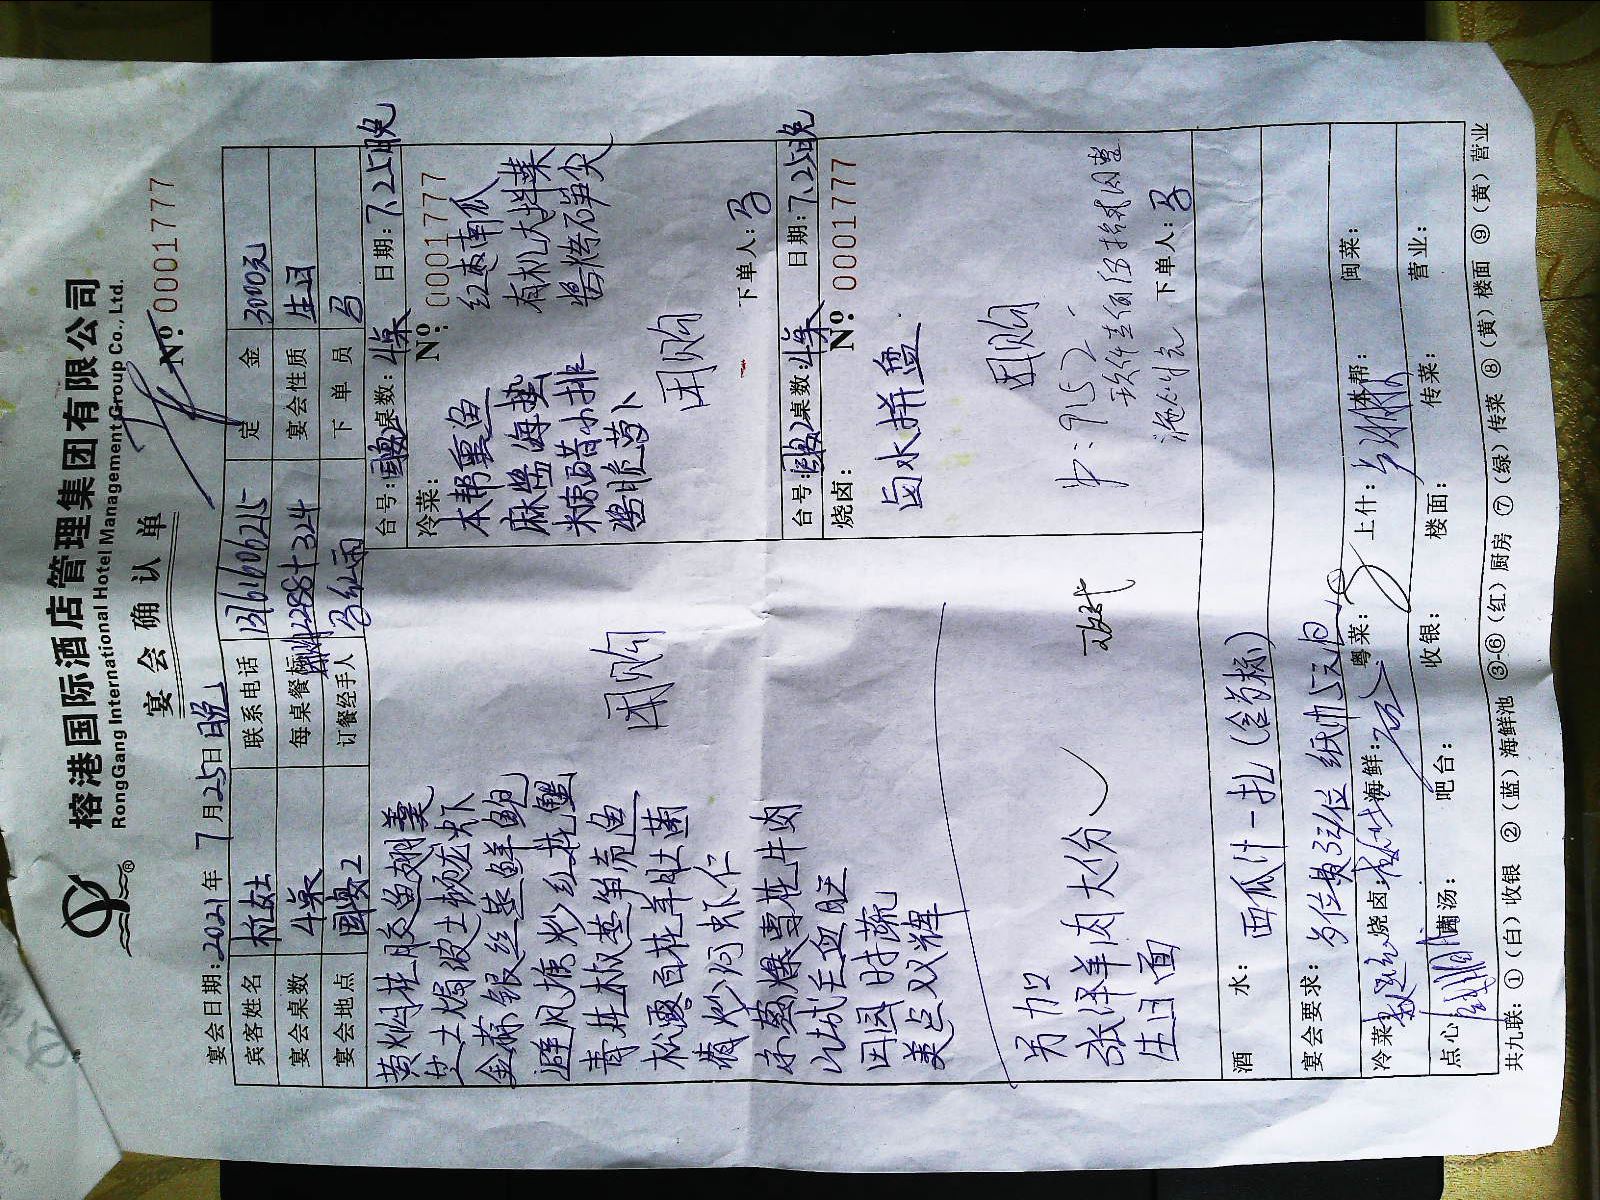 榕港国际酒店管理集团有限公司
RongGang International Hotel Management Group Co., Ltd.
®
宴会确认单
Nº:0001777
宴会日期:2021年7月25日晚
宾客姓名 联系电话 13761600625 定金 3000元
宴会桌数 4桌 每桌餐标 2288+324 宴会性质 生日
宴会地点 國奥2 订餐经手人 马红雨 下单员 马
黄焖花胶鱼翅羹
芝士焗波士顿龙虾
金蒜银丝蒸鲜鲍
避风塘炒红花蟹
青花椒蒸笋壳鱼
松露百花羊肚菌
藏炒河虾仁
京葱爆雪花牛肉
山城毛血旺
田园时蔬
美点双辉
团购
另加
张泽羊肉大份
生日面
台号:國奥2 桌数:4桌 日期:7.25晚
冷菜: Nº: 0001777
本帮熏鱼 红枣南瓜
麻酱海蜇 有机大拌菜
糖醋小排 酱烤石笋尖
酱脆萝卜
团购
下单人:马
台号:國奥2 桌数:4桌 日期:7.25晚
烧卤: Nº: 0001777
卤水拼盘
团购
9152
下单人:马
酒水: 西瓜汁一扎(含餐标)
宴会要求: 多位费3/位 纸巾5元/包
冷菜: 烧卤: 海鲜: 粤菜: 上什: 本帮: 闽菜:
点心: 羹汤: 吧台: 收银: 楼面: 传菜: 营业:
共九联:①(白)收银 ②(蓝)海鲜池 ③-⑥(红)厨房 ⑦(绿)传菜 ⑧(黄)楼面 ⑨(黄)营业